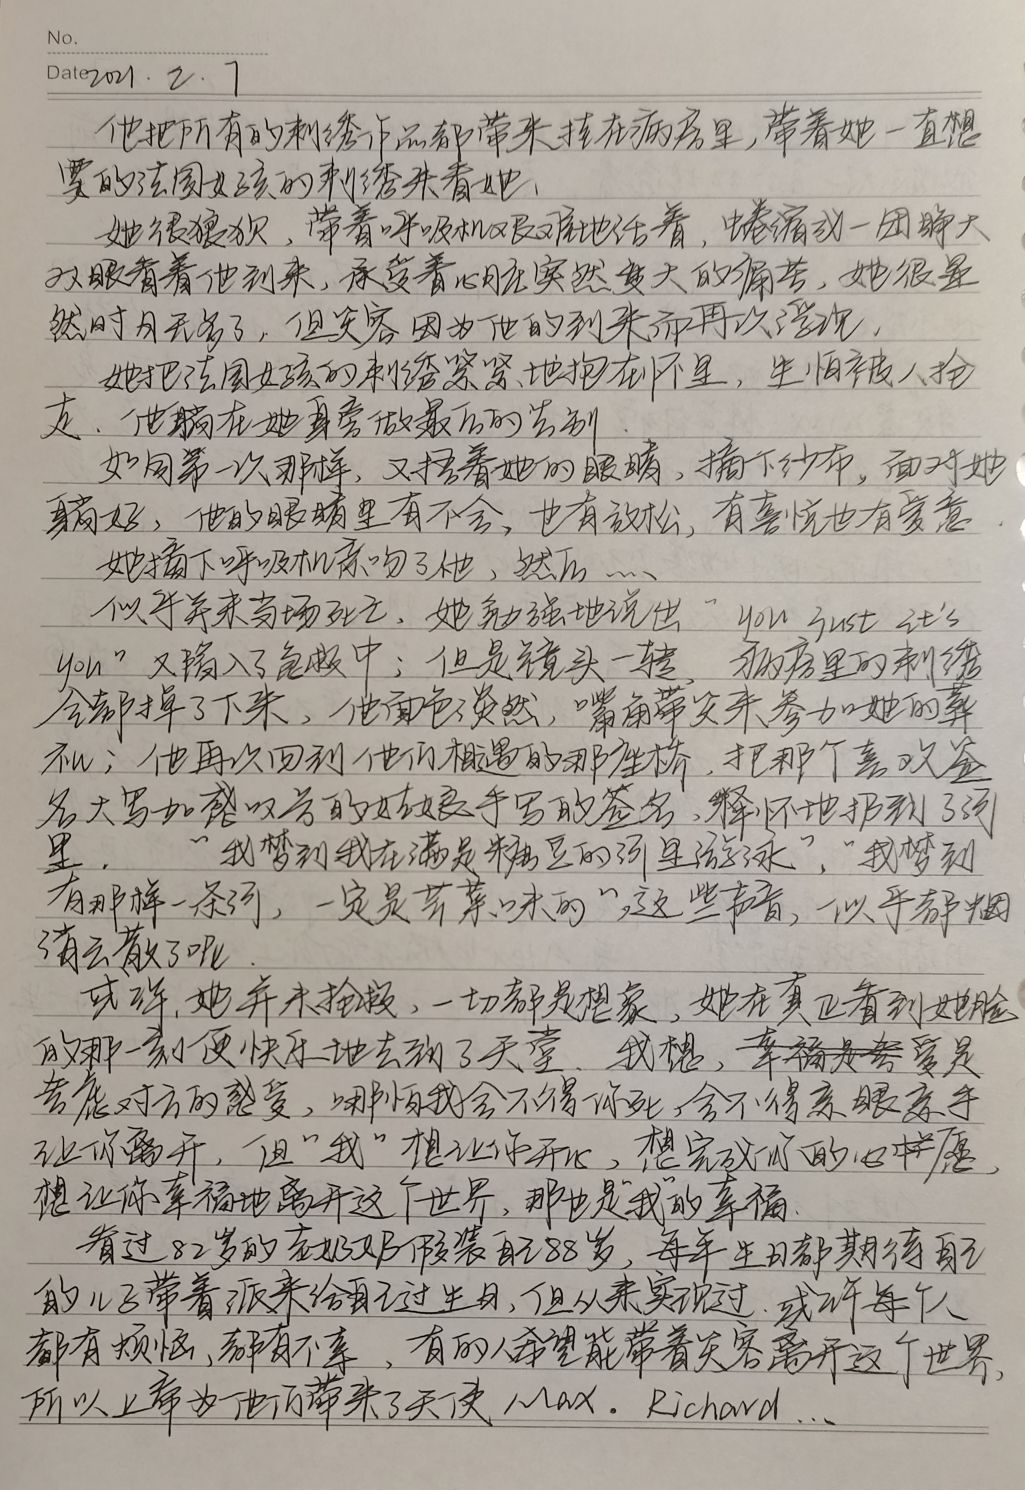 No.
Date 2021.2.7
他把所有的刺绣作品都带来挂在病房里,带着她一直想
要的法国女孩的刺绣来看她.
她很狼狈,带着呼吸机艰难地活着,蜷缩成一团睁大
双眼看着他到来,承受着心脏突然变大的痛苦,她很显
然时日无多了,但笑容因为他的到来而再次浮现.
她把法国女孩的刺绣紧紧地抱在怀里,生怕被人抢
走.他躺在她身旁做最后的告别.
如同第一次那样,又捂着她的眼睛,摘下纱布,面对她
躺好,他的眼睛里有不舍,也有放松,有喜悦也有爱意.
她摘下呼吸机亲吻了他,然后……
似乎并未当场死亡,她勉强地说出“you just it's
you”又陷入了急救中;但是镜头一转,病房里的刺绣
全都掉了下来,他面色淡然,嘴角带笑来参加她的葬
礼;他再次回到他们相遇的那座桥,把那个喜欢签
名大写加感叹号的姑娘手写的签名,释怀地扔到了河
里.“我梦到我在满是糖豆的河里游泳”,“我梦到
有那样一条河,一定是芹菜味的”,这些声音,似乎都烟
消云散了呢.
或许,她并未抢救,一切都是想象,她在真正看到她脸
的那一刻便快乐地去到了天堂.我想,爱是
考虑对方的感受,哪怕我舍不得你死,舍不得亲眼亲手
让你离开,但“我”想让你开心,想完成你的心愿,
想让你幸福地离开这个世界,那也是“我”的幸福.
看过82岁的老奶奶假装自己88岁,每年生日都期待自己
的儿子带着派来给自己过生日,但从来实现过.或许每个人
都有烦恼,都有不幸,有的人希望能带着笑容离开这个世界,
所以上帝为他们带来了天使 Max. Richard...